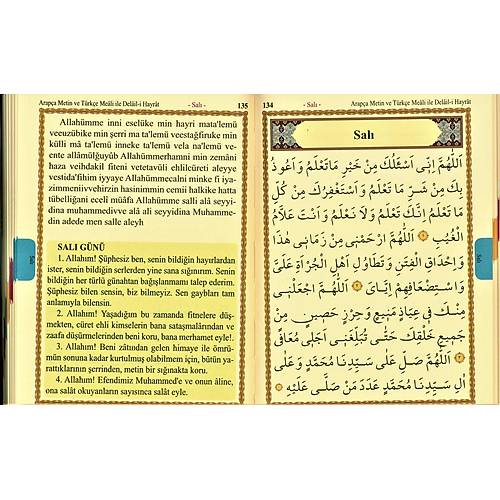 Arapça Metin ve Türkçe Meâli ile Delâil-i Hayrât - Salı - 135
Allahümme inni eselüke min hayri mata'lemü
veeuzübike min şerri ma ta'lemü veestağfiruke min
külli mâ ta'lemü inneke ta'lemü vela na'lemü ve-
ente allâmülğuyûb Allahümmerhamni min zemâni
haza veihdakil fiteni vetetavüli ehlilcüreti aleyye
vestida'fihim iyyaye Allahümmecalni minke fi iya-
zimmeniivvehirzin hasinimmin cemii halkike hatta
tübelliğani eceli müâfa Allahümme salli alâ seyyi-
dina muhammedivve alâ ali seyyidina Muhamme-
din adede men salle aleyh
SALI GÜNÜ
1. Allahım! Şüphesiz ben, senin bildiğin hayırlardan
ister, senin bildiğin serlerden yine sana sığınırım. Senin
bildiğin her türlü günahtan bağışlanmamı talep ederim.
Şüphesiz bilen sensin, biz bilmeyiz. Sen gaybları tam
anlamıyla bilensin.
2. Allahım! Yaşadığım bu zamanda fitnelere düş-
mekten, cüret ehli kimselerin bana sataşmalarından ve
zaafa düşürmelerinden beni koru, bana merhamet eyle!.
3. Allahım! Beni zâtından gelen himaye ile ömrü-
mün sonuna kadar kurtulmuş olabilmem için, bütün ya-
rattıklarının şerrinden, metin bir sığınakta koru.
4. Allahım! Efendimiz Muhammed'e ve onun âline,
ona salât okuyanların sayısınca salât eyle.
Salı
134 - Salı - Arapça Metin ve Türkçe Meâli ile Delâil-i Hayrât
Salı
اَللّٰهُمَّ اِنّ۪ى اَسْئَلُكَ مِنْ خَيْرِ مَاتَعْلَمُ وَاَعُوذُ
بِكَ مِنْ شَرِّ مَا تَعْلَمُ وَاَسْتَغْفِرُكَ مِنْ كُلِّ
مَا تَعْلَمُ اِنَّكَ تَعْلَمُ وَلَا نَعْلَمُ وَاَنْتَ عَلَّامُ
الْغُيُبِ اَللّٰهُمَّ ارْحَمْن۪ى مِنْ زَمَان۪ى هٰذَا
وَاِحْدَاقِ الْفِتَنِ وَتَطَاوُلِ اَهْلِ الْجُرْاَةِ عَلَىَّ
وَاسْتِضْعَافِهِمْ اِيَّاىَ اَللّٰهُمَّ اجْعَلْن۪ى
مِنْكَ ف۪ى عِيَاذٍ مَن۪يعٍ وَحِرْزٍ حَص۪ينٍ مِنْ
جَم۪يعِ خَلْقِكَ حَتّٰى تُبَلِّغَن۪ى اَجَل۪ى مُعَافًى
اَللّٰهُمَّ صَلِّ عَلٰى سَيِّدِنَا مُحَمَّدٍ وَعَلٰى
اٰلِ سَيِّدِنَا مُحَمَّدٍ عَدَدَ مَنْ صَلّٰى عَلَيْهِ
Salı